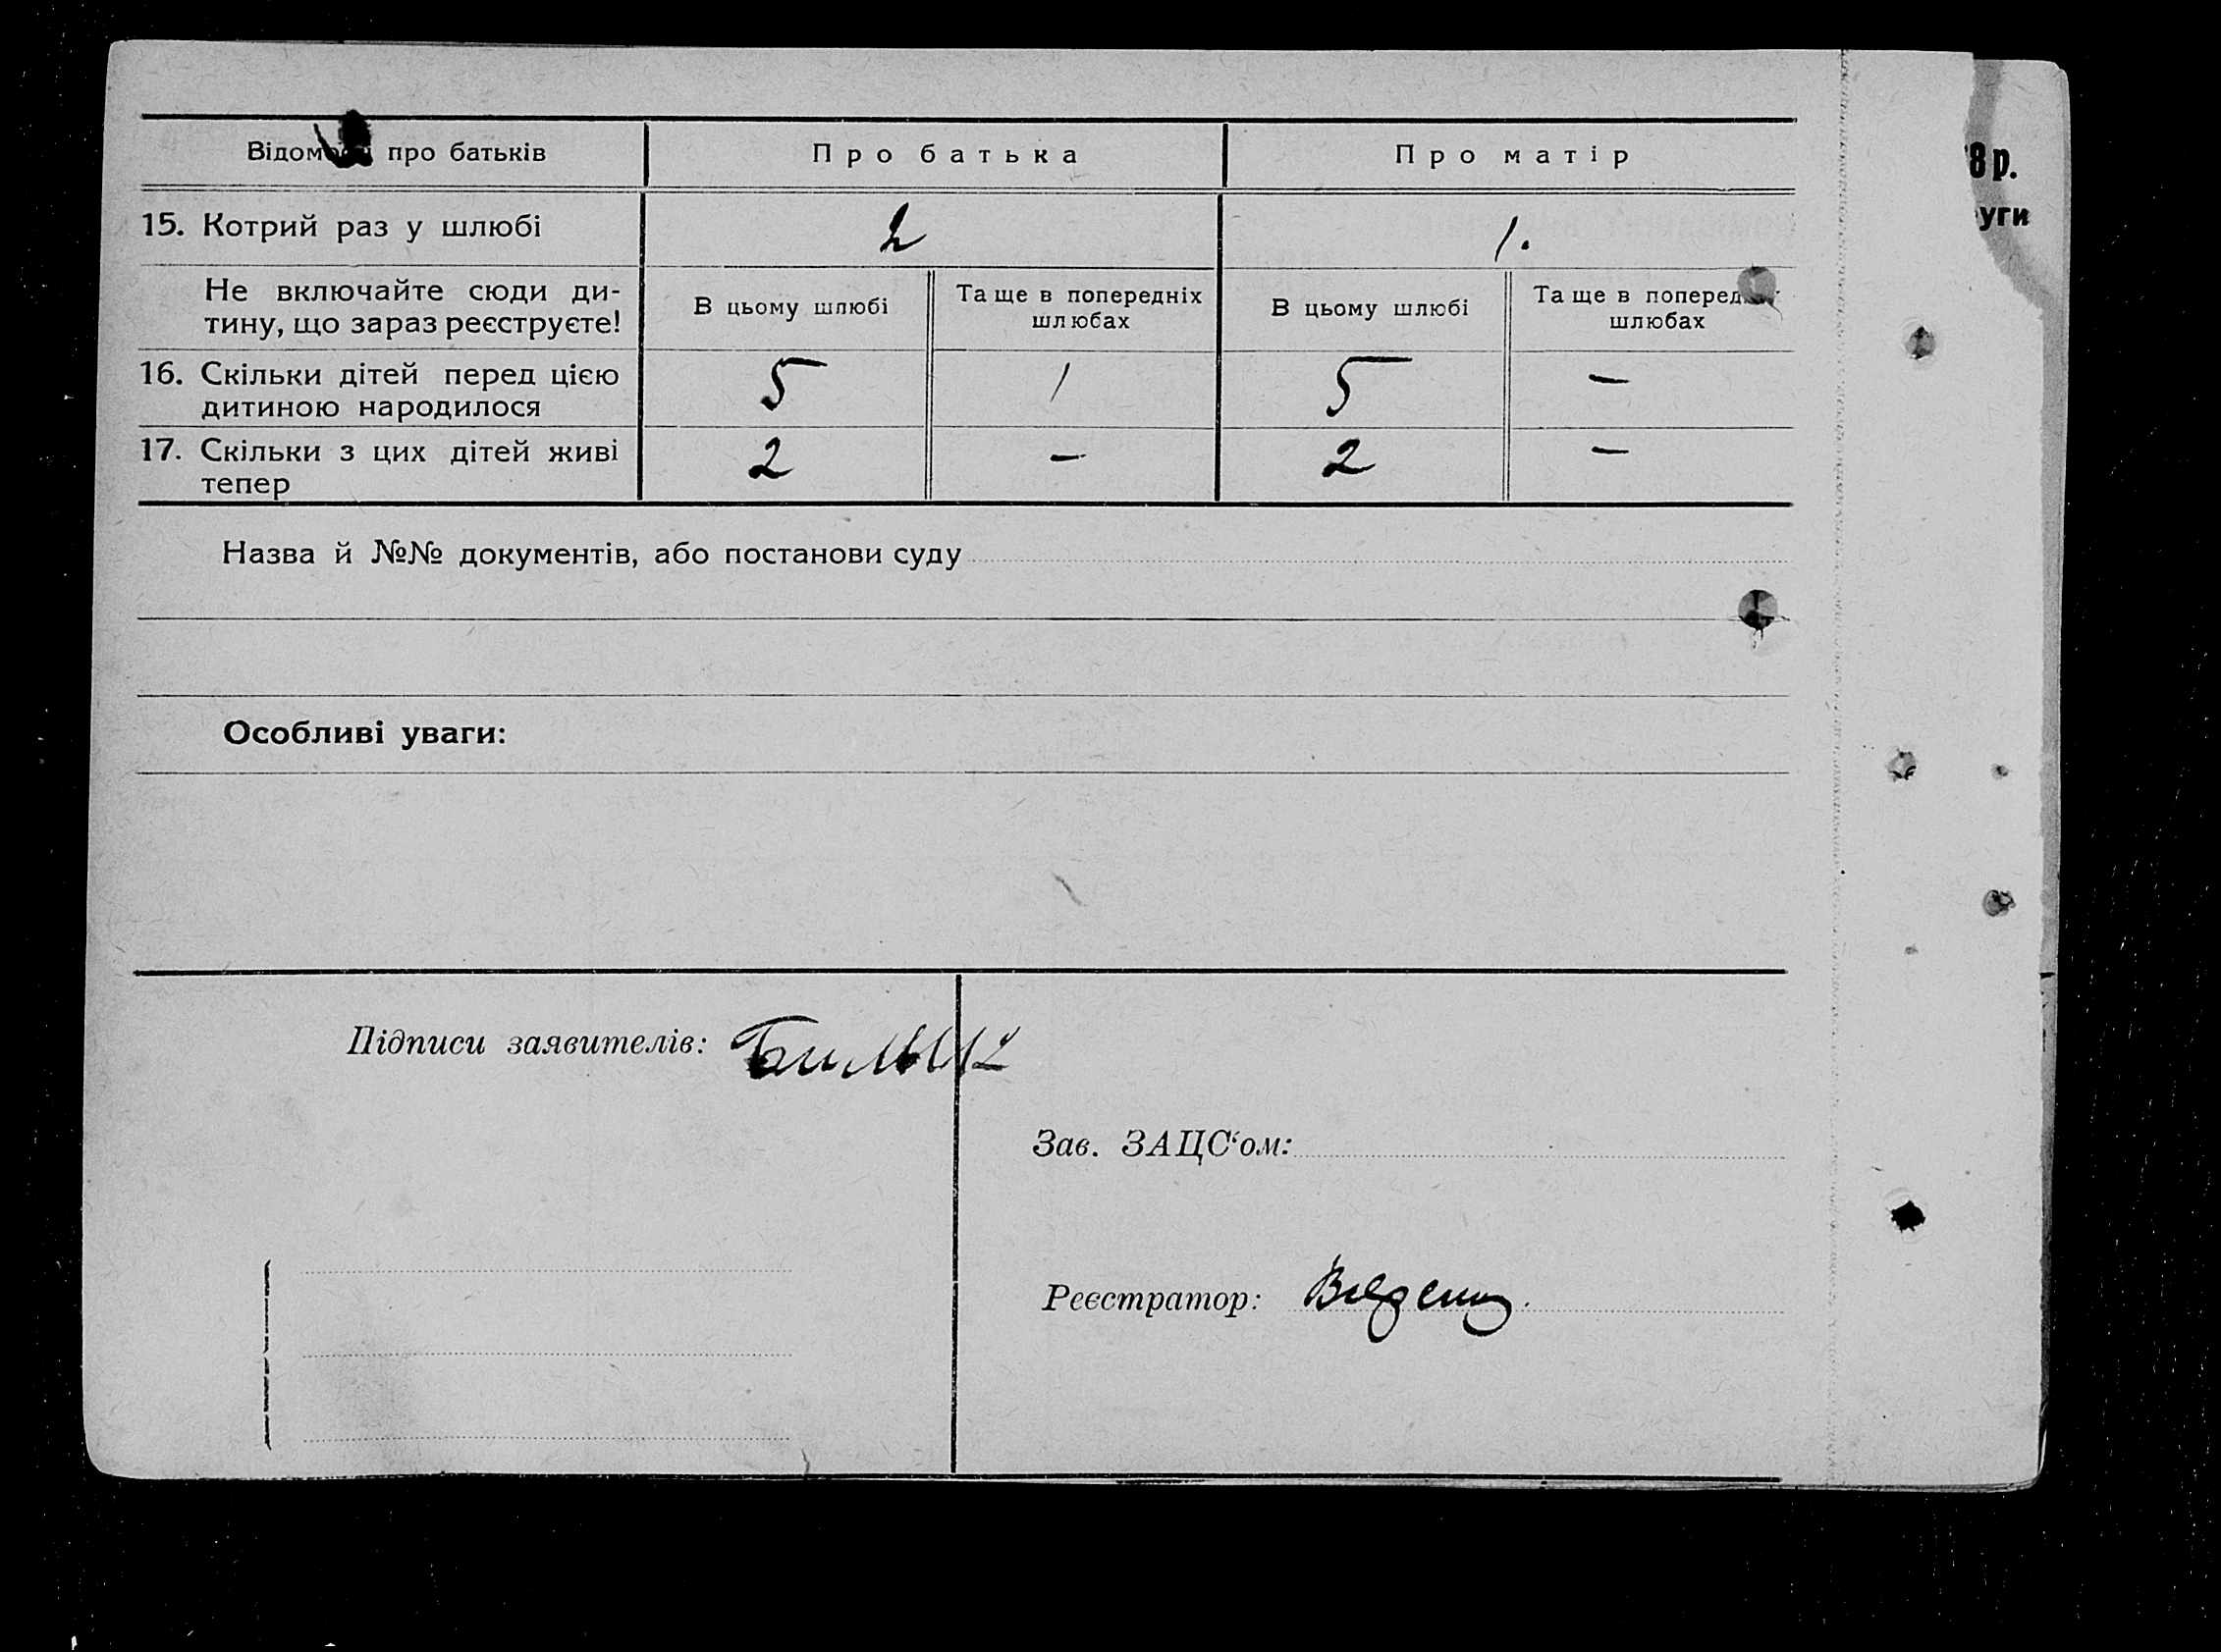 Відомості про батьків Про батька Про матір
8 р.
уги
15. Котрий раз у шлюбі 2 1.
Не включайте сюди ди-
тину, що зараз реєструєте!
В цьому шлюбі
Та ще в попередніх
шлюбах
В цьому шлюбі
Та ще в попередніх
шлюбах
16. Скільки дітей перед цією
дитиною народилося
5 1 5 —
17. Скільки з цих дітей живі
тепер
2 — 2 —
Назва й №№ документів, або постанови суду
Особливі уваги:
Підписи заявителів:
Зав. ЗАЦС‘ом:
Реєстратор: